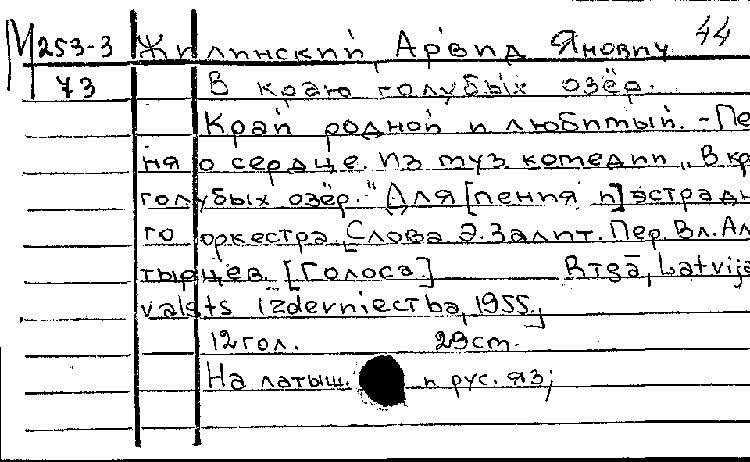 М253-3 Жилинский, Арвид Янович 44
73 В краю голубых озёр.
Край родной и любимый. - Пе
ня о сердце. Из муз комедии „В кр
голубых озёр." Для [пения и] эстрадн
го оркестра. Слова Э. Залит. Пер. Вл. Ал
тырцев. [Голоса] Rīgā, Latvija
valsts izdevniecība, 1955.
12 гол. 29 cm.
На латыш. и рус. яз;